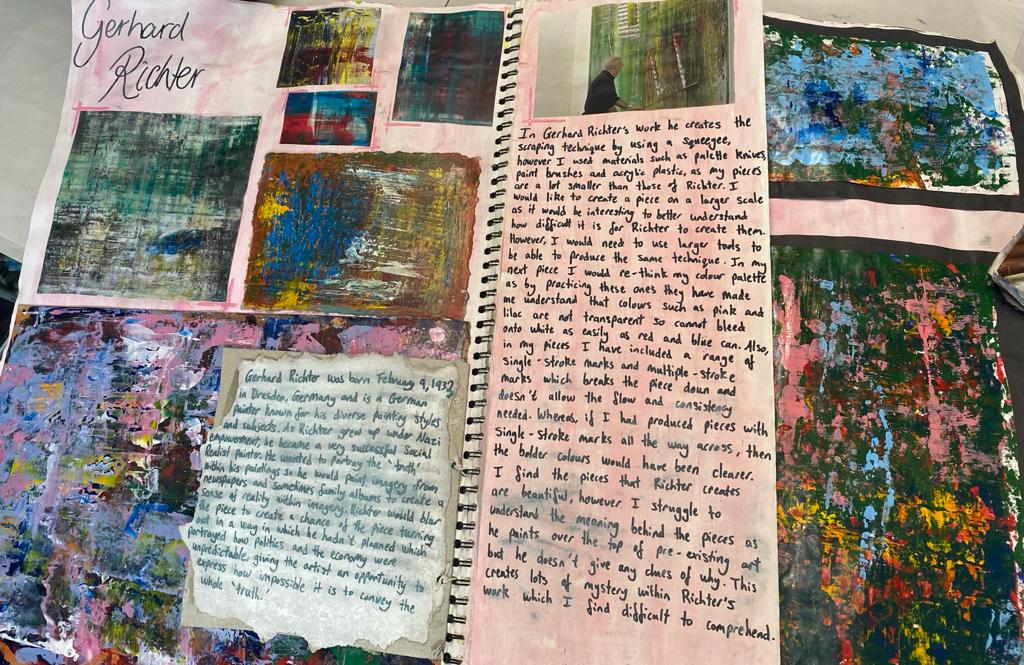 Gerhard
Richter
Gerhard Richter was born February 9, 1932
in Dresden, Germany and is a German
painter known for his diverse painting styles
and subjects. As Richter grew up under Nazi
empowerment, he became a very successful Social
Realist painter. He wanted to portray the 'truth'
within his paintings so he would paint imagery from
newspapers and sometimes family albums to create a
sense of reality within imagery. Richter would blur
the piece to create a chance of the piece turning
out in a way in which he hadn't planned which
portrayed how politics and the economy were
unpredictable, giving the artist an opportunity to
express how impossible it is to convey the
whole 'truth.'
In Gerhard Richter's work he creates the
scraping technique by using a squeegee,
however I used materials such as palette knives,
paint brushes and acrylic plastic, as my pieces
are a lot smaller than those of Richter. I
would like to create a piece on a larger scale
as it would be interesting to better understand
how difficult it is for Richter to create them.
However, I would need to use larger tools to
be able to produce the same technique. In my
next piece I would re-think my colour palette
as by practicing these ones they have made
me understand that colours such as pink and
lilac are not transparent so cannot bleed
onto white as easily as red and blue can. Also,
in my pieces I have included a range of
single-stroke marks and multiple-stroke
marks which breaks the piece down and
doesn't allow the flow and consistency
needed. Whereas, if I had produced pieces with
single-stroke marks all the way across, then
the bolder colours would have been clearer.
I find the pieces that Richter creates
are beautiful, however I struggle to
understand the meaning behind the pieces as
he paints over the top of pre-existing art
but he doesn't give any clues of why. This
creates lots of mystery within Richter's
work which I find difficult to comprehend.